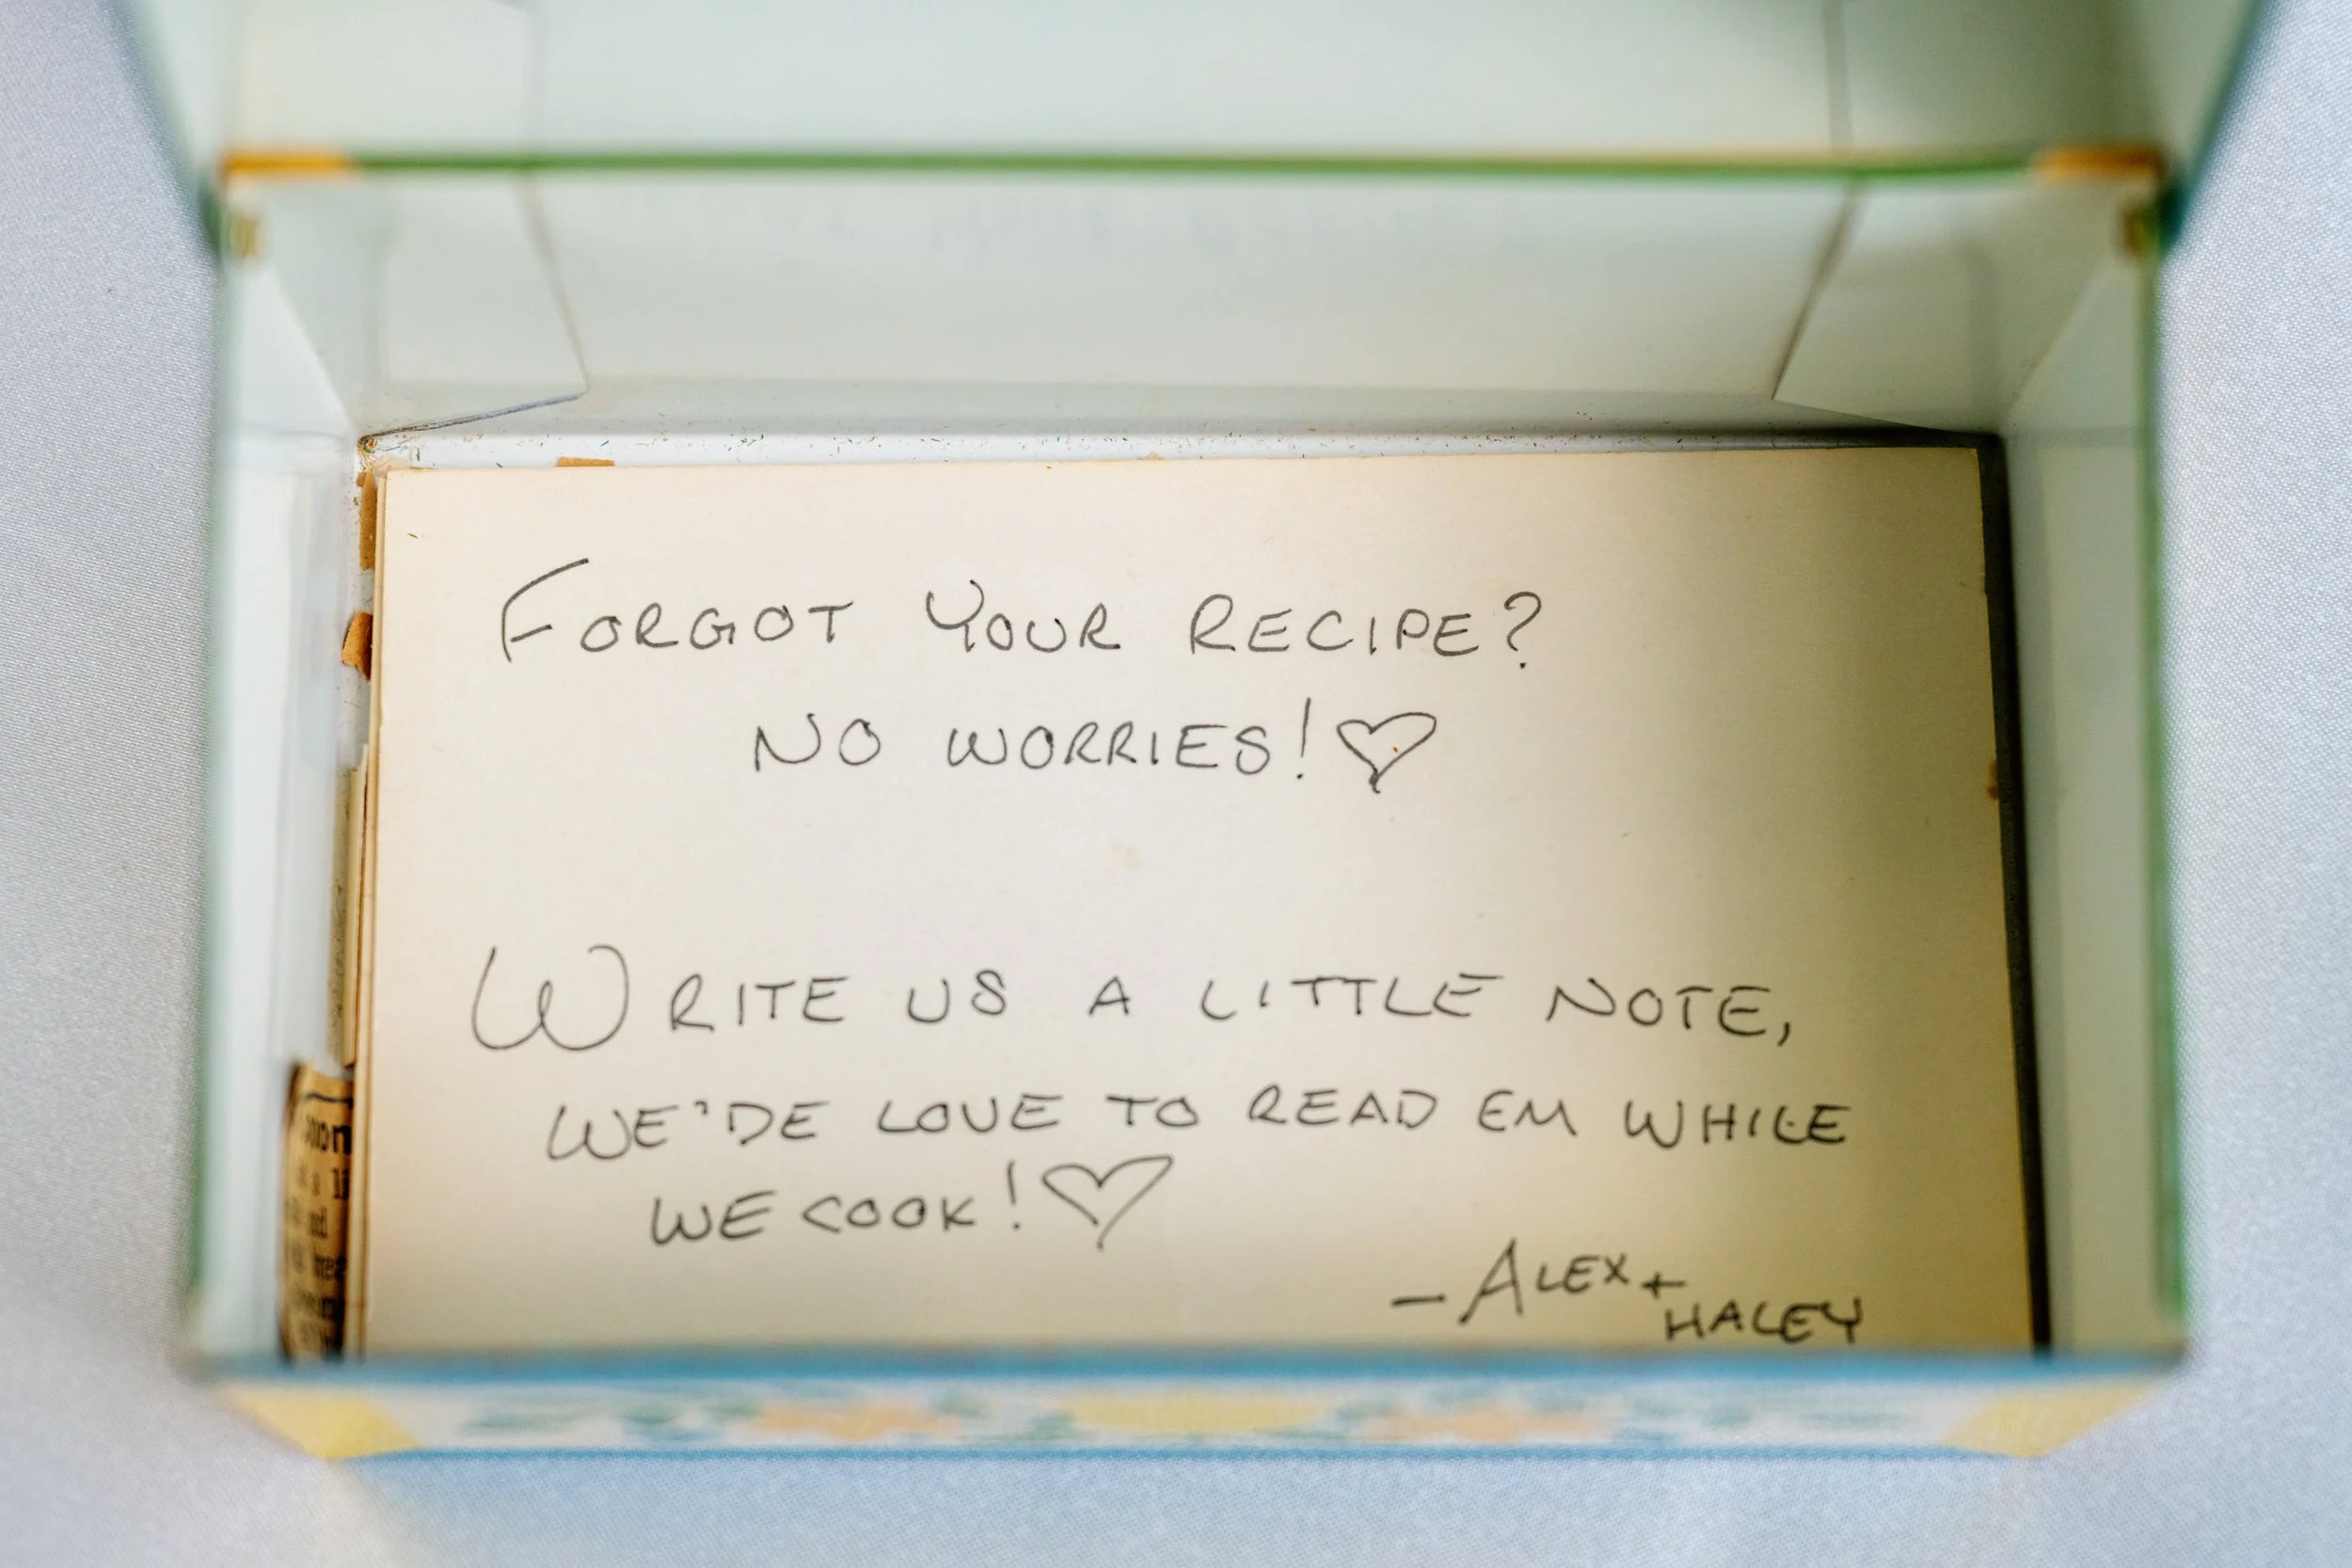 FORGOT YOUR RECIPE?
NO WORRIES! ♡
WRITE US A LITTLE NOTE,
WE'DE LOVE TO READ EM WHILE
WE COOK! ♡
- ALEX +
HALEY